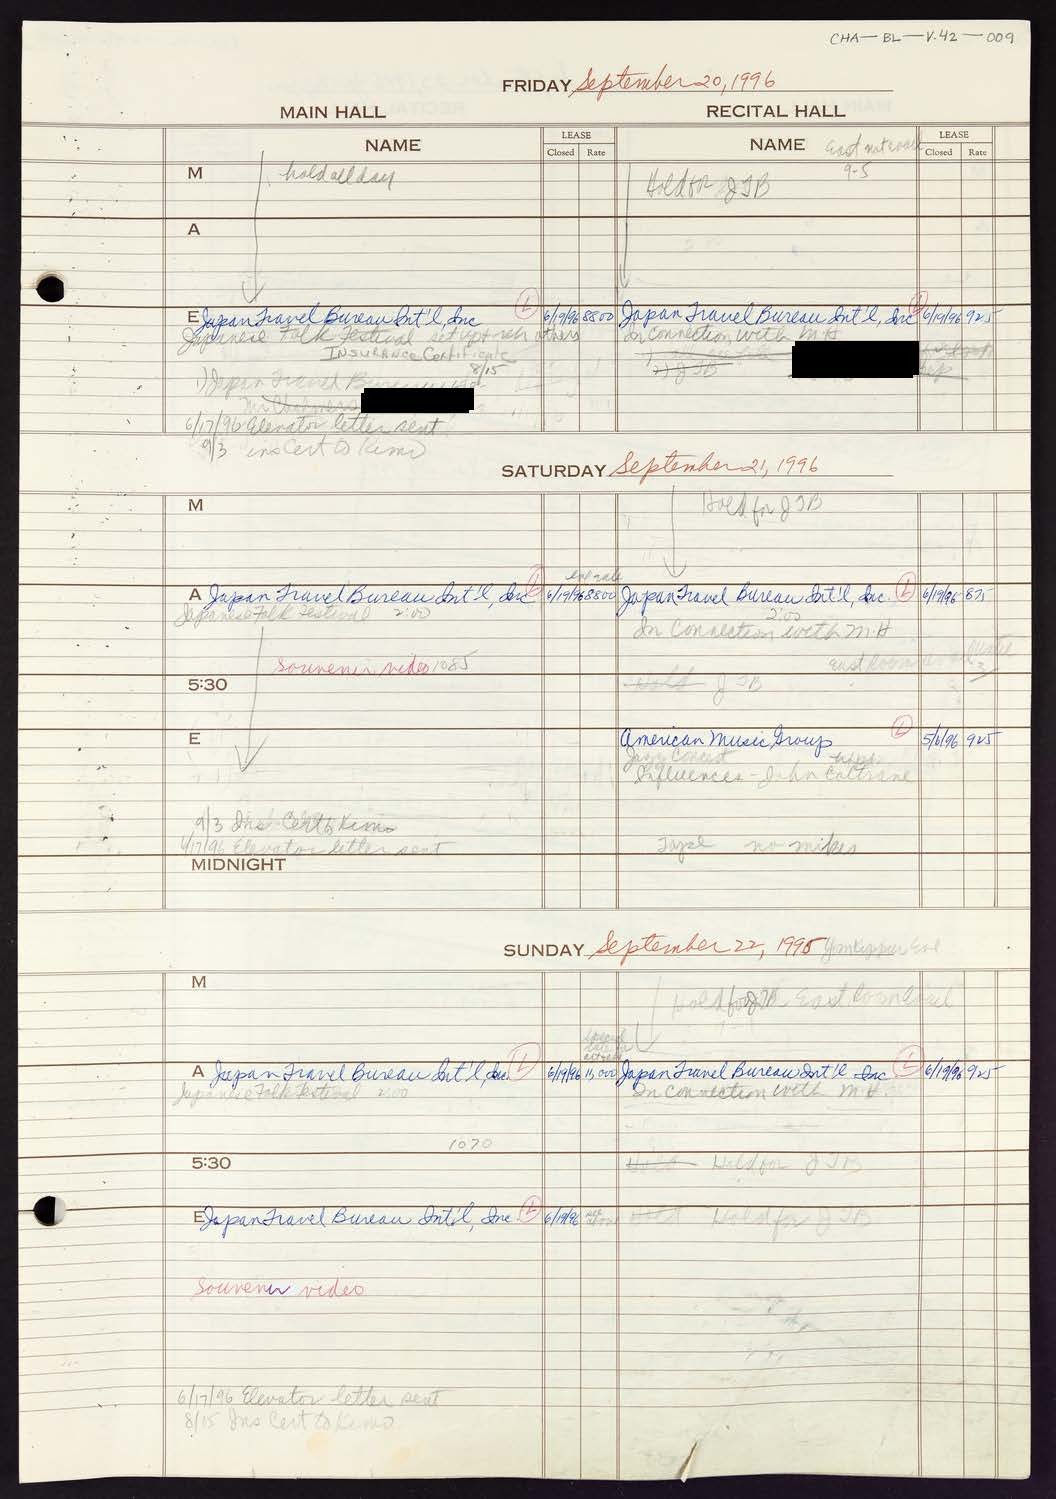 CHA—BL—V.42—009
FRIDAY September 20, 1996
MAIN HALL RECITAL HALL
NAME LEASE Closed Rate NAME LEASE Closed Rate
M hold all day Hold for JTB 9-5
A
E Japan Travel Bureau Int'l, Inc L 6/19/96 8800 Japan Travel Bureau Int'l, Inc L 6/19/96 925
Japanese Folk Festival set up + reh others In Connection with M H
INSURANCE Certificate
8/15
1) Japan Travel Bureau 2) JTB
Mr
6/17/96 Elevator letter sent
9/3 ins Cert to Kimo
SATURDAY September 21, 1996
M Hold for JTB
A Japan Travel Bureau Int'l, Inc L 6/19/96 8800 Japan Travel Bureau Int'l, Inc. L 6/19/96 875
Japanese Folk Festival 2:00 2:00
In Connection with M H
Souvenir video 1085 East Room
5:30 Hold JTB
E American Music Group L 5/6/96 925
Jazz Concert
Influences - John Coltrane
9/3 Ins Cert to Kimo
6/17/96 Elevator letter sent Tape no mikes
MIDNIGHT
SUNDAY September 22, 1996 Yom Kippur Eve
M Hold for JTB East Room
A Japan Travel Bureau Int'l, Inc. L 6/19/96 11,000 Japan Travel Bureau Int'l Inc L 6/19/96 925
Japanese Folk Festival 2:00 In Connection with M H.
1070
5:30 Hold Hold for JTB
E Japan Travel Bureau Int'l, Inc. L 6/19/96 Hold Hold for JTB
Souvenir video
6/17/96 Elevator letter sent
8/15 Ins Cert to Kimo